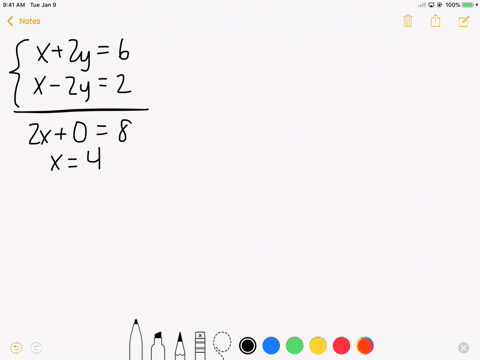 9:41 AM Tue Jan 9
100%
Notes
x + 2y = 6
x - 2y = 2
2x + 0 = 8
x = 4